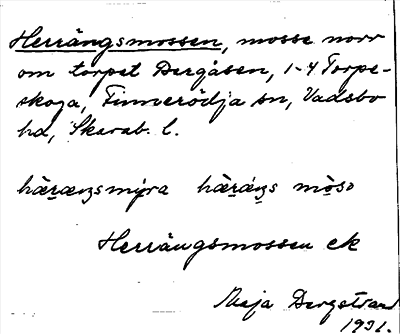 Herrängsmossen, mosse norr
om torpet Bergåsen, 1-4 Torpe-
skoga, Finnerödja sn, Vadsbo
hd, Skarab. l.
hæræŋsmýra hæræŋs mòso
Herrängsmossen ek
Maja Bergstrand
1931.